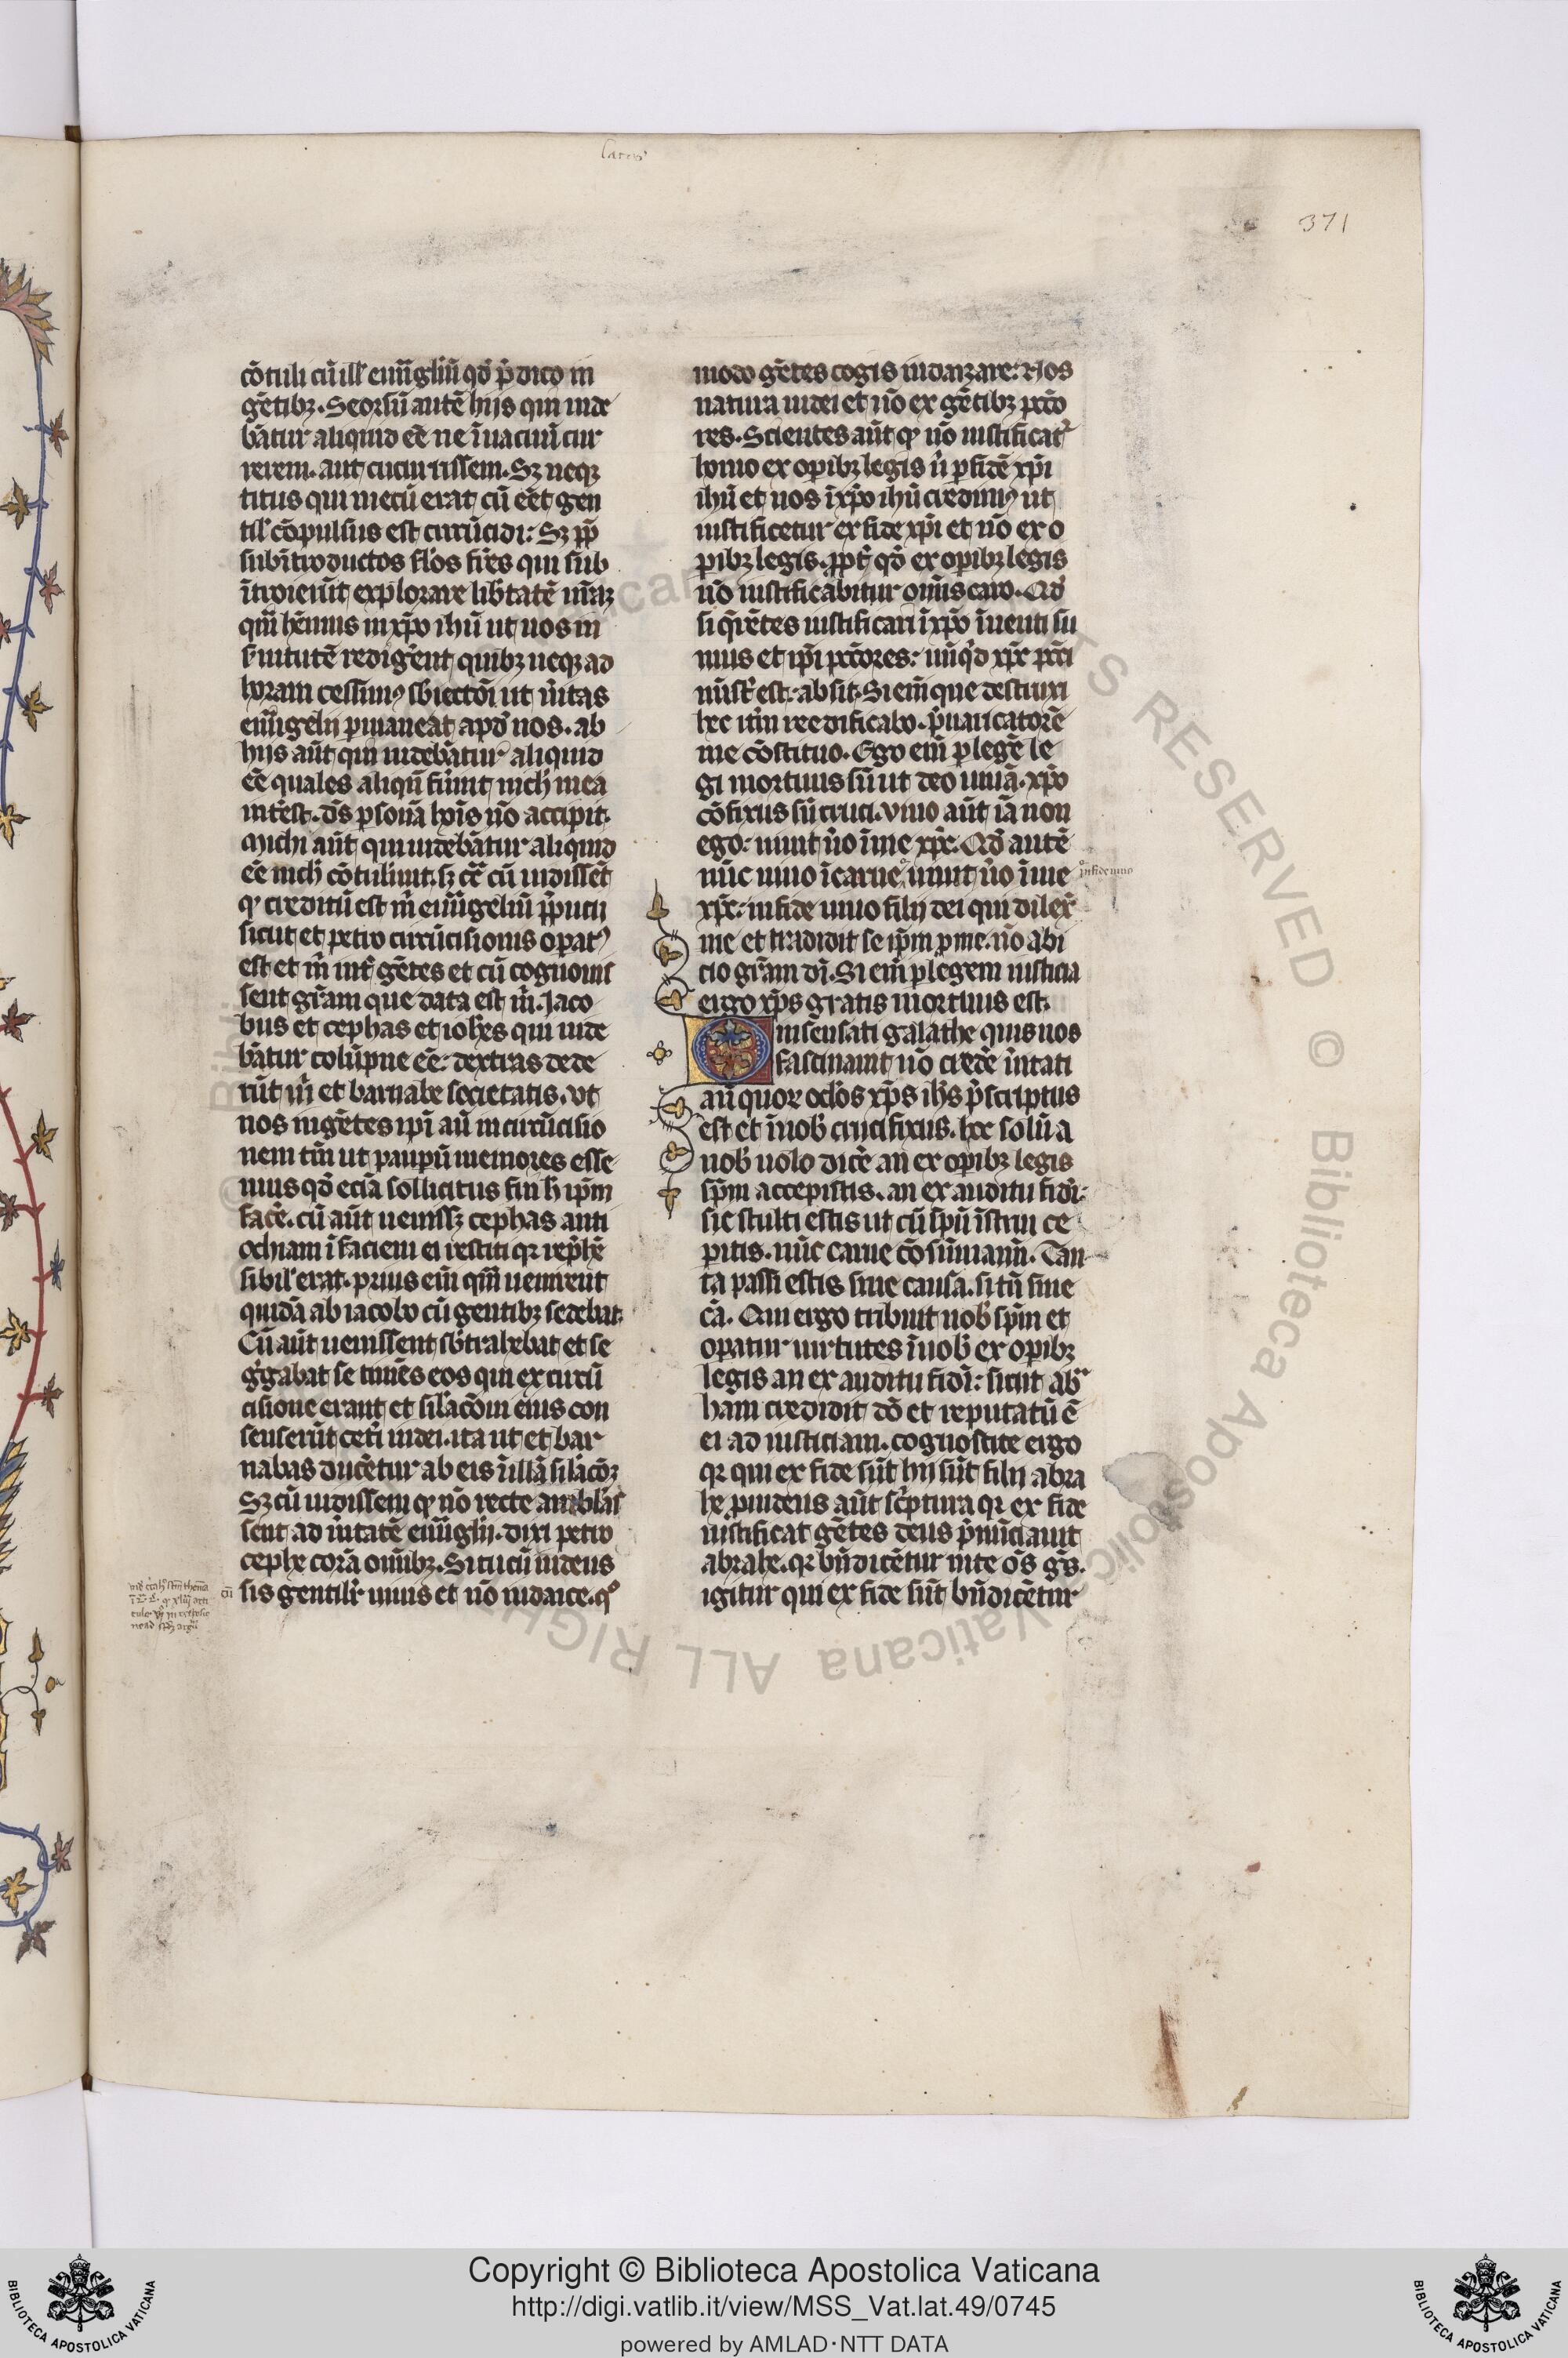 371
cōtuli cū ill' euūgliū qd̄ p̄dico in
gētibꝫ. Seorsū autē hijs qui uide
bātur aliquid eē ne īuacuū cur
rerem. aut cucurrissem. Sꝫ neqꝫ
titus qui mecū erat cū eēt gen
til' cōpulsus est circūcidi: Sꝫ pp̄
subītroductos fl'os fr̄es qui sub
ītroierūt explorare lib̄tatē nr̄aꝫ
qm̄ hēmus in xp̄o ihū ut nos in
s'uitutē redigērent quibꝫ neqꝫ ad
horam cessimꝰ sb̄iectōi ut ūitas
euūgelij pmaneat apd' uos. ab
hijs aūt qui uidebātur aliquid
eē quales aliqn̄ fūint nich' mea
int̄est. ds̄ psonā hoīs nō accipit.
Michi aūt qui uidebātur aliquid
eē nich' cōtulīunt. sꝫ cr̄ cū uidissēt
ꝙ creditū est m̄ euūgeliū pp̄ucij
sicut et petro circūcisionis opatꝰ
est et m̄ int̄ gētes et cū cognouis
sent grām que data est m̄. Jaco
bus et cephas et ioh̄es qui uide
bātur colūpne eē: dextras dede
rūt m̄ et barnabe societatis. vt
nos in gētes ipī aū in circūcisio
nem tm̄ ut paupū memores esse
mus qd̄ eciā sollicitus fui h ipm̄
facē. cū aūt uenissꝫ cephas anti
ochiam ī faciem ei restiti qr rep̄hē
sibil' erat. prius eī qm̄ uenirent
quidā ab iacobo cū gentibꝫ sedebat.
Cū aūt uenissent sb̄trahebat et se
g'gabat se timēs eos qui ex circū
cisione erant et sil'acōni eius con
senserūt cet̄i iudei. ita ut et bar
nabas ducētur ab eis ī illā sil'acōꝫ
Sꝫ cū uidissem ꝙ nō recte ambl'as
sent ad ūitatē euūglij. dixi petro
cephe corā omībꝫ. Si tu cū iudeus
sis gentilr̄ uiuis et nō iudaice. qº
cū
modo gētes cogis iudaizare: Nos
natura iudei et nō ex gētibꝫ pccō
res. Scientes aūt ꝙ nō iustificatr̄
homo ex opibꝫ legis n̄ p fidē xp̄i
ihū et nos ī xp̄o ihū credimꝰ ut
iustificetur ex fide xp̄i et nō ex o
pibꝫ legis. ppt̄ qd̄ ex opibꝫ legis
nō iustificābitur omīs caro. Qd'
si q̄rētes iustificari ī xp̄o īuenti su
mus et ipī pccōres: nūq'd xp̄c pccī
minist' est. absit. Si eī que destruxi
hec it̄m reedifico. p̄uaricatorē
me cōstituo. Ego eī p legē le
gi mortuus sū ut deo uiuā. xp̄o
cōfixus sū cruci. viuo aūt iā non
ego: uiuit ūo ī me xp̄c. Qd' autē
nūc uiuo ī carne uiuit ūo ī me
in fide uiuo
xp̄c: in fide uiuo filij dei qui dilex̄
me et tradidit se ipm̄ p me. nō abi
cio grām dī. Si eī p legem iusticia
ergo xp̄s gratis mortuus est.
O insensati galathe quis uos
fascinauit nō credē ūitati
añ quoꝝ oclōs xp̄s ih̄s p̄scriptus
est et ī uob' crucifixus. hoc solū a
uob' uolo dicē an ex opibꝫ legis
spm̄ accepistis. an ex auditu fidī:
sic stulti estis ut cū spū īstrui ce
pitis. nūc carne cōsūmamī. Tan
ta passi estis sine causa. si tn̄ sine
cā. Qui ergo tribuit uob' spm̄ et
opatur uirtutes ī uob' ex opibꝫ
legis an ex auditu fidī: sicut abr
ham credidit dō et reputatū ē
ei ad iusticiam. cognoscite ergo
qr qui ex fide sūt hij sūt filij abra
he puidens aūt sc̄ptura qr ex fide
iustificat gētes deus p̄nūciauit
abrahe. qr bn̄dicētur in te oēs gs̄.
igitur qui ex fide sūt bn̄dicētur
Copyright © Biblioteca Apostolica Vaticana
http://digi.vatlib.it/view/MSS_Vat.lat.49/0745
powered by AMLAD·NTT DATA
BIBLIOTECA APOSTOLICA VATICANA
BIBLIOTECA APOSTOLICA VATICANA